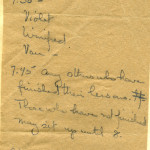 7.30
Violet
Winifred
Van
7.45 any others who have
finished their lessons. #
Those who have not finished
may sit up until 8.